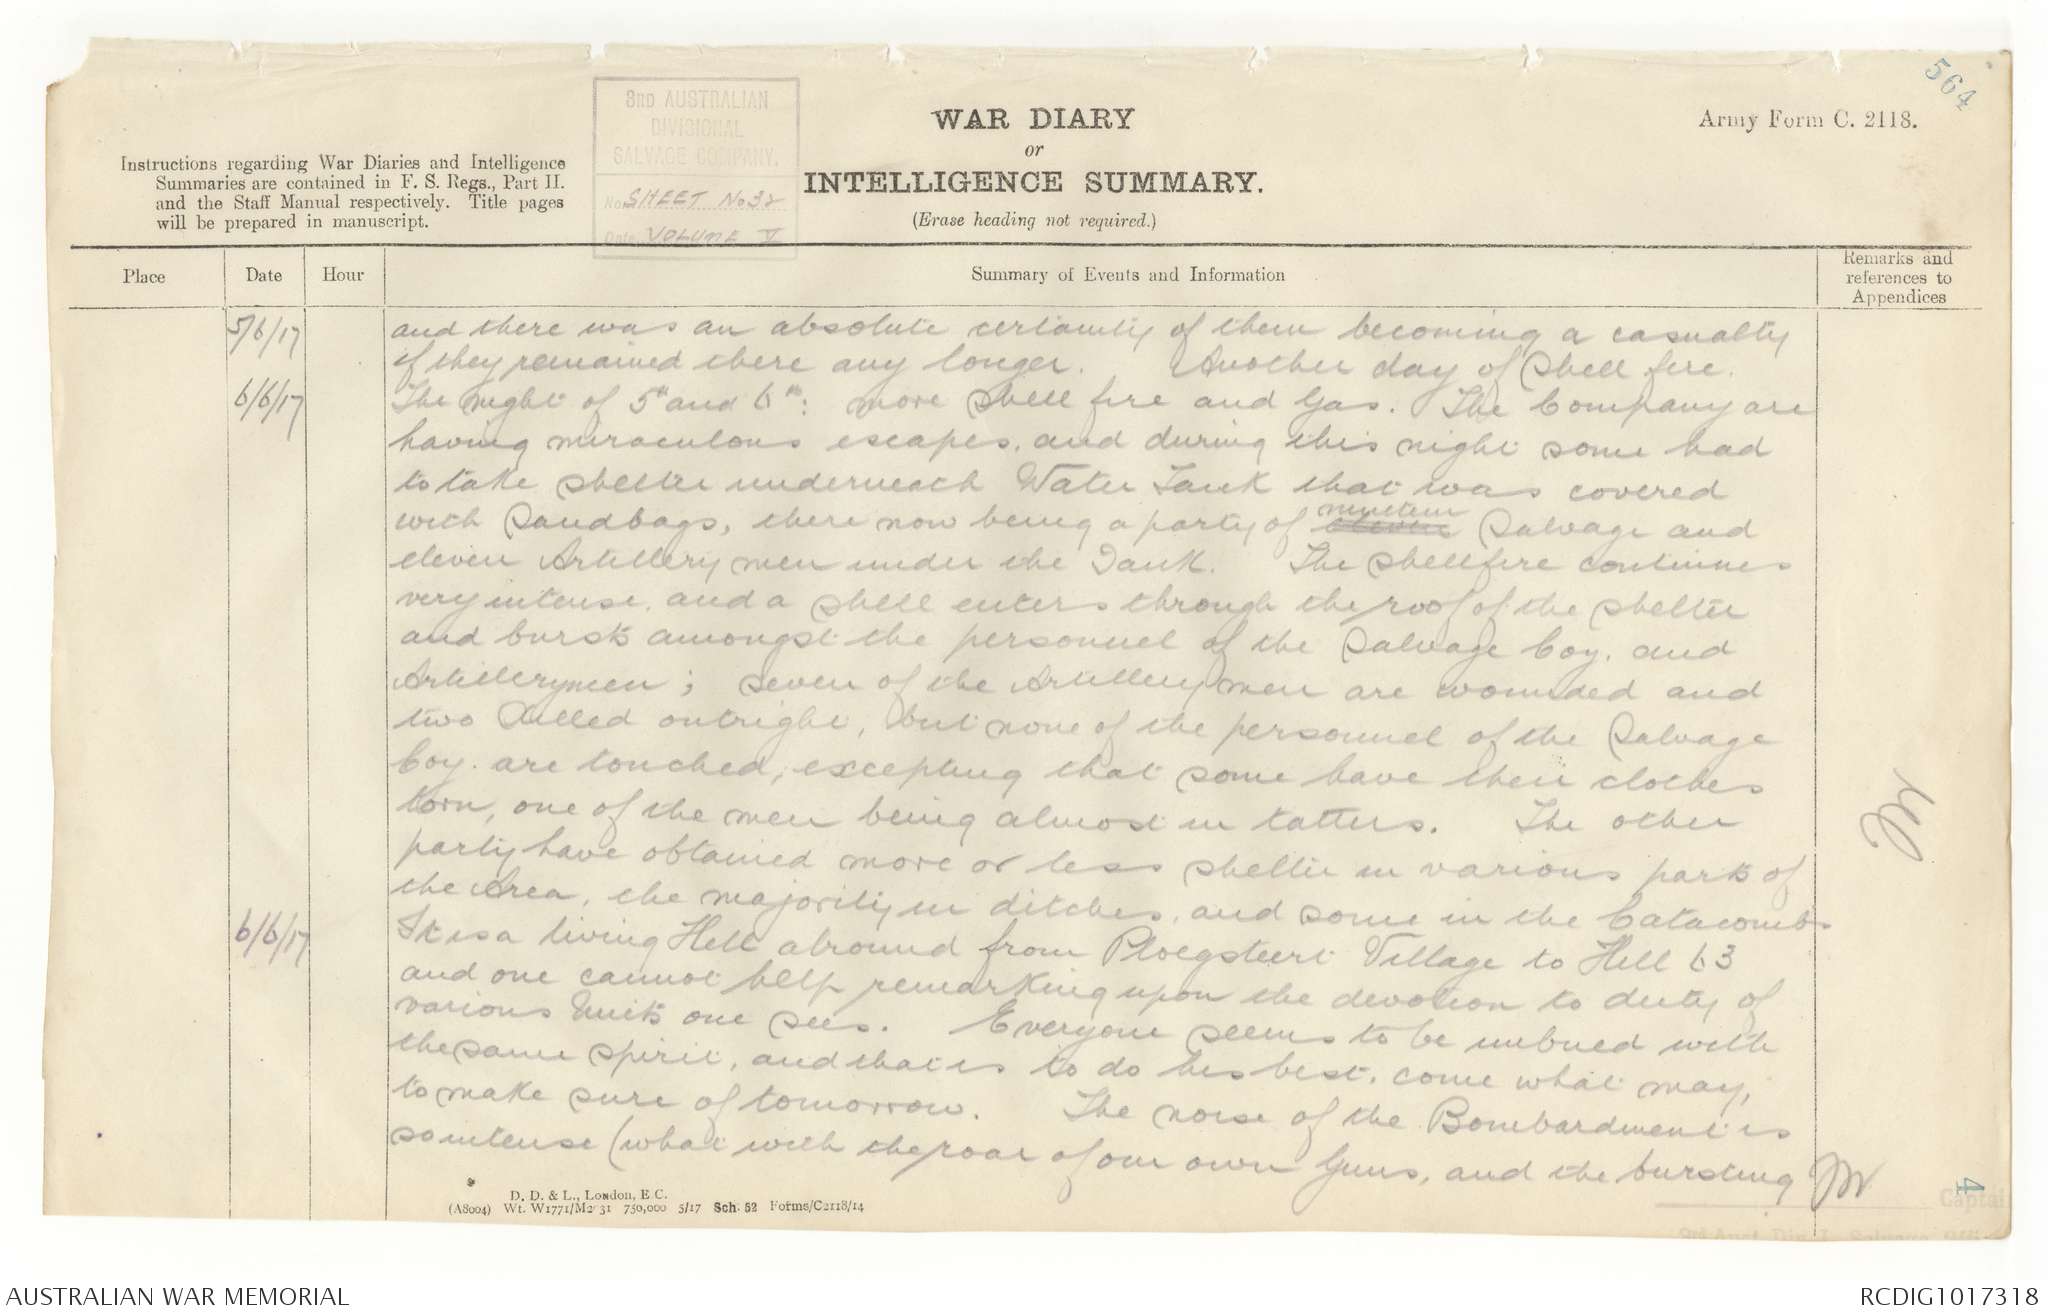 564
3RD AUSTRALIAN
DIVISIONAL
SALVAGE COMPANY.
No. SHEET No 32
Date VOLUME V
WAR DIARY
or
INTELLIGENCE SUMMARY.
(Erase heading not required.)
Army Form C. 2118.
Instructions regarding War Diaries and Intelligence
Summaries are contained in F. S. Regs., Part II.
and the Staff Manual respectively. Title pages
will be prepared in manuscript.
Place Date Hour Summary of Events and Information Remarks and
references to
Appendices
5/6/17 and there was an absolute certainty of them becoming a casualty
if they remained there any longer. Another day of shell fire.
6/6/17 The night of 5th and 6th: more shell fire and Gas. The Company are
having miraculous escapes, and during this night some had
to take shelter underneath Water Tank that was covered
with Sandbags, there now being a party of nineteen Salvage and
eleven Artillery men under the Tank. The shellfire continues
very intense, and a shell enters through the roof of the shelter
and bursts amongst the personnel of the Salvage Coy. and
Artillerymen; seven of the Artillery men are wounded and
two killed outright, but none of the personnel of the Salvage
Coy. are touched, excepting that some have their clothes
torn, one of the men being almost in tatters. The other
party have obtained more or less shelter in various parts of
the Area, the majority in ditches, and some in the Catacombs
6/6/17 It is a living Hell around from Ploegsteert Village to Hill 63
and one cannot help remarking upon the devotion to duty of
various Units one sees. Everyone seems to be imbued with
the same spirit, and that is to do his best, come what may,
to make sure of tomorrow. The noise of the Bombardment is
so intense (what with the roar of our own Guns, and the bursting
4
Captai
D. D. & L., London, E.C.
(A8004) Wt. W1771/M2 31 750,000 5/17 Sch: 52 Forms/C2118/14
AUSTRALIAN WAR MEMORIAL
RCDIG1017318